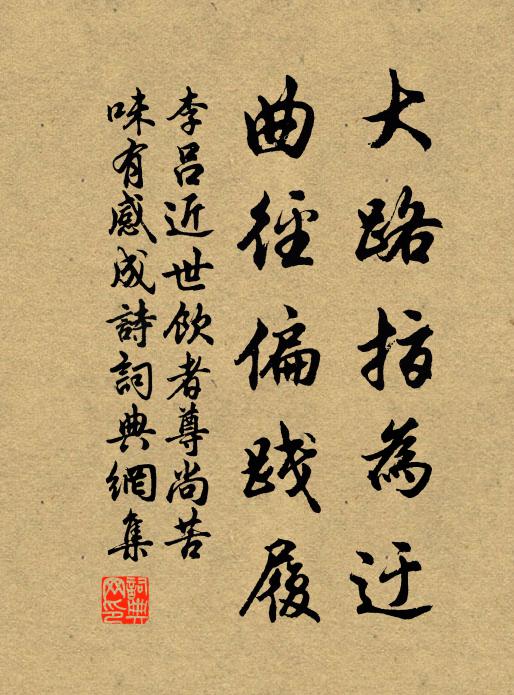 大路指為迂
曲徑偏踐履
李呂近世飲者尊尚苦
味有感成詩詞典網集
詞典网印